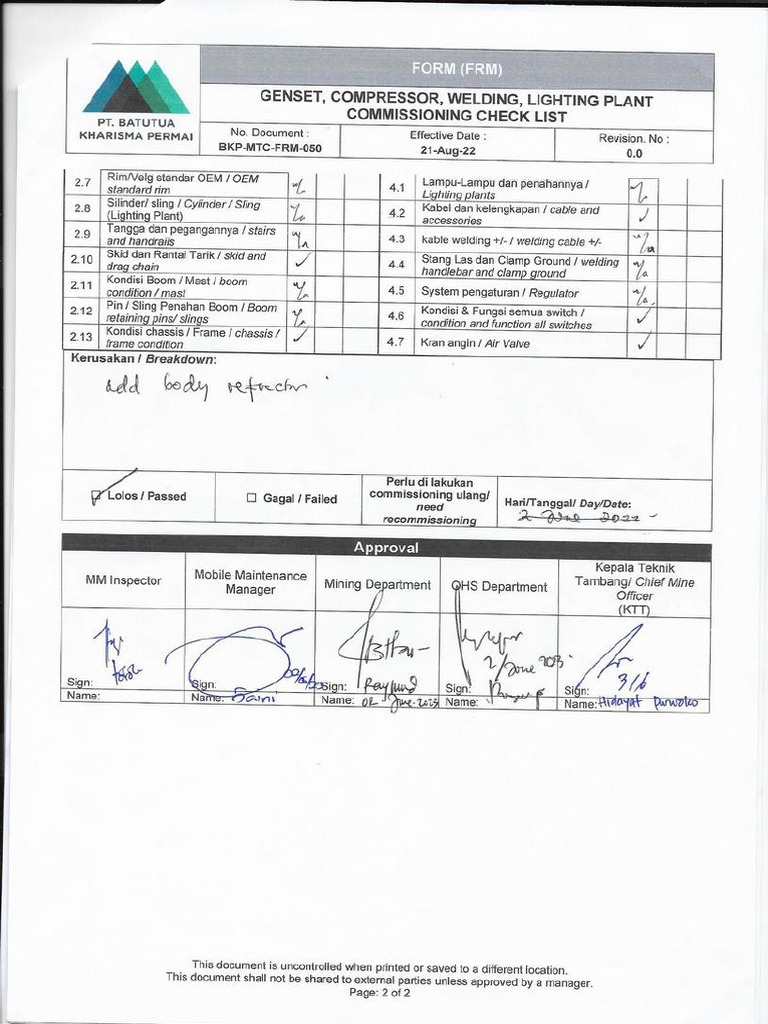 FORM (FRM)
GENSET, COMPRESSOR, WELDING, LIGHTING PLANT
COMMISSIONING CHECK LIST
PT. BATUTUA
KHARISMA PERMAI
No. Document :
BKP-MTC-FRM-050
Effective Date :
21-Aug-22
Revision. No :
0.0
2.7 Rim/Velg standar OEM / OEM
standard rim
n/a
2.8 Silinder/ sling / Cylinder / Sling
(Lighting Plant)
n/a
2.9 Tangga dan pegangannya / stairs
and handrails
n/a
2.10 Skid dan Rantai Tarik / skid and
drag chain
✓
2.11 Kondisi Boom / Mast / boom
condition / mast
n/a
2.12 Pin / Sling Penahan Boom / Boom
retaining pins/ slings
n/a
2.13 Kondisi chassis / Frame / chassis /
frame condition
✓
4.1 Lampu-Lampu dan penahannya /
Lighting plants
n/a
4.2 Kabel dan kelengkapan / cable and
accessories
✓
4.3 kable welding +/- / welding cable +/-
n/a
4.4 Stang Las dan Clamp Ground / welding
handlebar and clamp ground
n/a
4.5 System pengaturan / Regulator
n/a
4.6 Kondisi & Fungsi semua switch /
condition and function all switches
✓
4.7 Kran angin / Air Valve
✓
Kerusakan / Breakdown:
add body refractor
Lolos / Passed
Gagal / Failed
Perlu di lakukan
commissioning ulang/
need
recommissioning
Hari/Tanggal/ Day/Date:
2 June 2022
Approval
MM Inspector
Mobile Maintenance
Manager
Mining Department
OHS Department
Kepala Teknik
Tambang/ Chief Mine
Officer
(KTT)
Sign:
Name:
Sign:
Name:
Sign:
Name: 02-June-2023
Sign: 2/June 2023
Name:
Sign: 3/6
Name: Hidayat Purwoko
This document is uncontrolled when printed or saved to a different location.
This document shall not be shared to external parties unless approved by a manager.
Page: 2 of 2